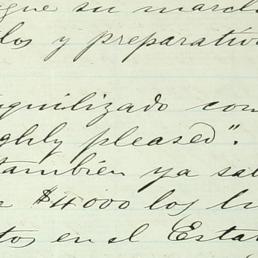 gue su march
dos y preparativo
quilizado con
ghly pleased".
también ya sa
$4000 los
tos en el Estad